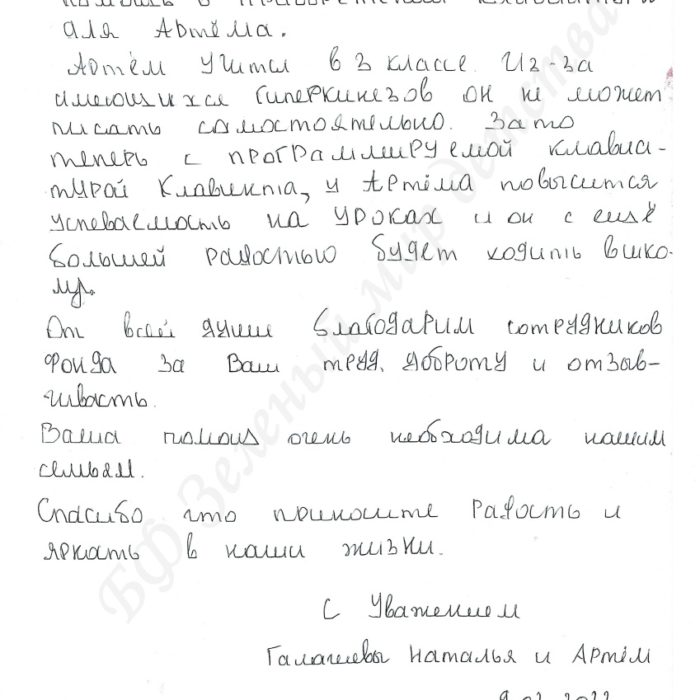 для Артёма.
Артём учится в 3 классе. Из-за
имеющихся гиперкинезов он не может
писать самостоятельно. Зато
теперь с программируемой клавиа-
турой Клавинта, у Артёма повысится
успеваемость на уроках и он с ещё
большей радостью будет ходить в шко-
лу.
От всей души благодарим сотрудников
Фонда за Ваш труд, доброту и отзыв-
чивость.
Ваша помощь очень необходима нашим
семьям.
Спасибо что приносите радость и
яркать в наши жизни.
С Уважением
Наталья и Артём
БФ Зеленый мир детства